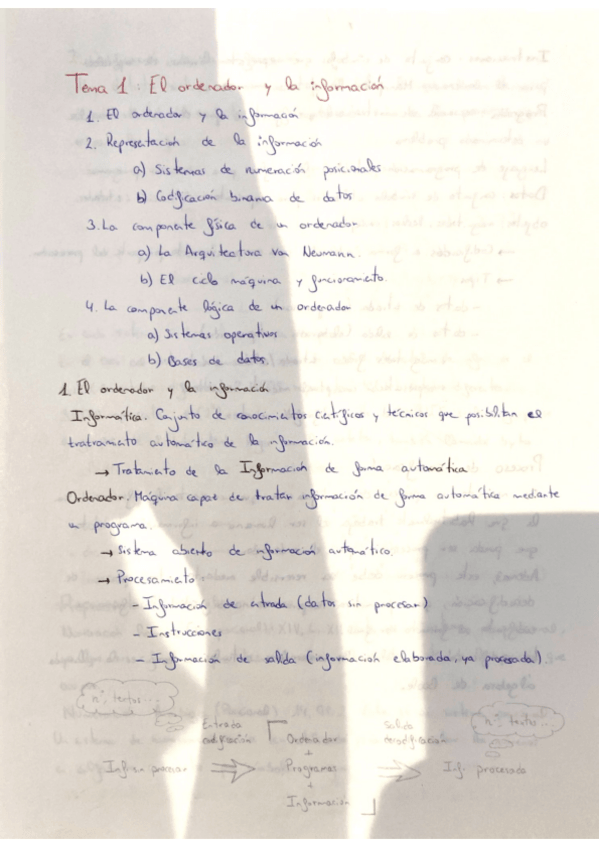 Tema 1: El ordenador y la información
1. El ordenador y la información
2. Representación de la información
a) Sistemas de numeración posicionales
b) Codificación binaria de datos
3. La componente física de un ordenador
a) La Arquitectura Von Neumann.
b) El ciclo máquina y funcionamiento.
4. La componente lógica de un ordenador
a) Sistemas operativos
b) Bases de datos.
1. El ordenador y la información
Informática. Conjunto de conocimientos científicos y técnicos que posibilitan el
tratamiento automático de la información.
→ Tratamiento de la Información de forma automática
Ordenador. Máquina capaz de tratar información de forma automática mediante
un programa.
→ Sistema abierto de información automático.
→ Procesamiento
- Información de entrada (datos sin procesar)
- Instrucciones
- Información de salida (información elaborada, ya procesada)
nº, textos... Entrada Salida nº, textos...
codificación Ordenador decodificación
+
Inf. sin procesar ⇒ Programas ⇒ Inf. procesada
+
Información